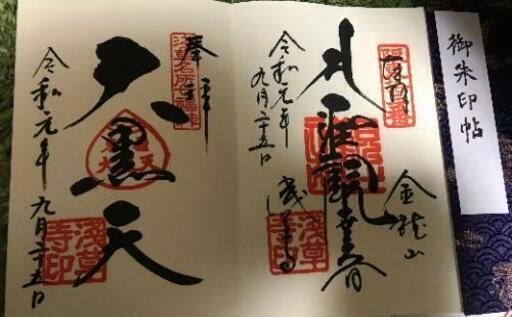 御朱印帖
奉拝
聖観世音
金龍山
浅草寺
令和元年
九月二十五日
浅草寺印
奉拝
浅草名所七福神
大黒天
浅草寺印
令和元年九月二十五日